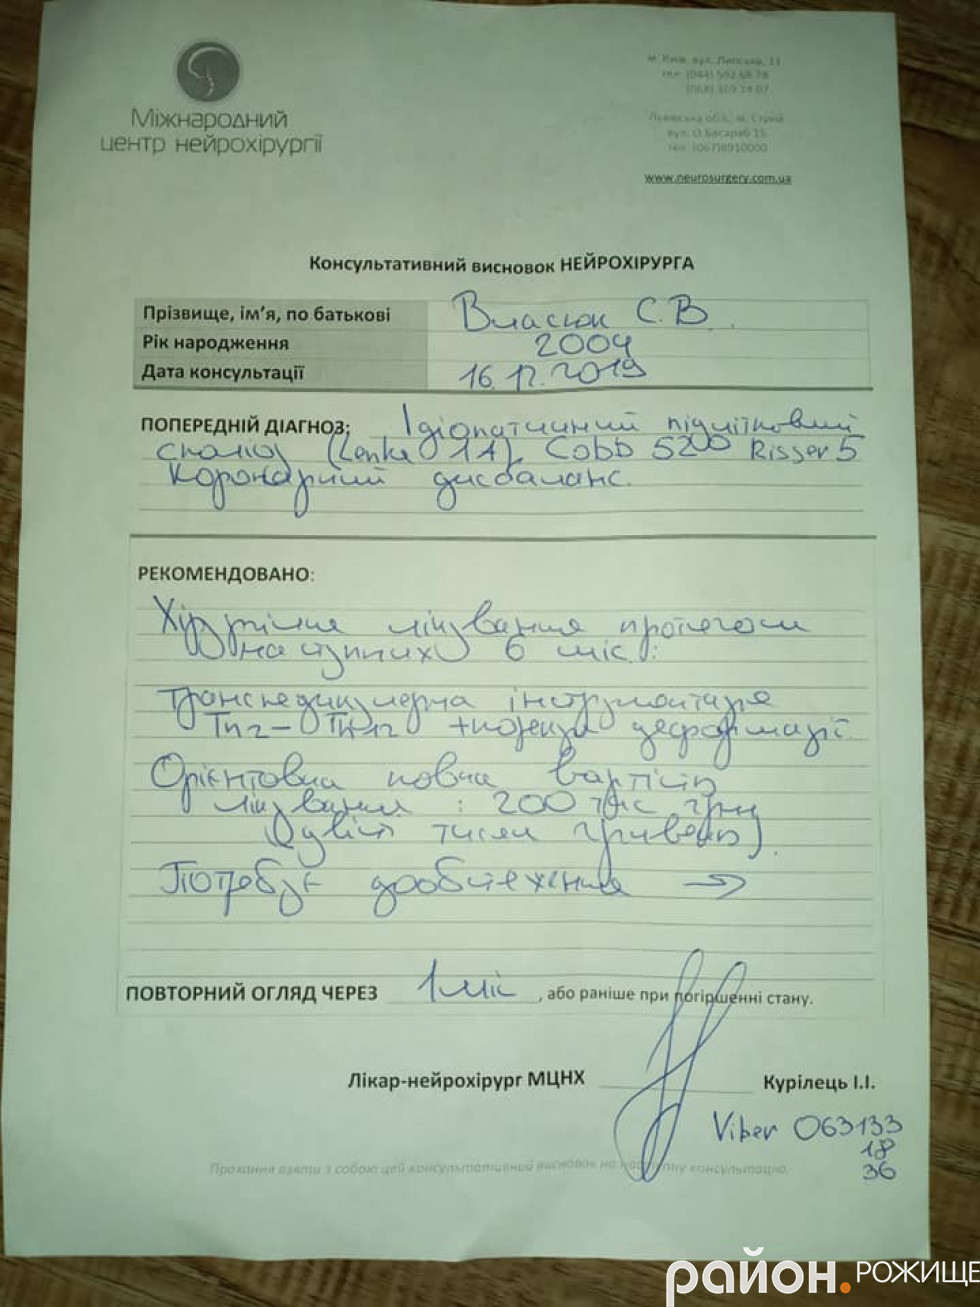 Міжнародний
центр нейрохірургії
м. Київ, вул. Липська, 11
тел. (044) 592 68 78
(068) 109 14 07
Львівська обл., м. Стрий
вул. О.Басараб 15
тел. (067)8910000
www.neurosurgery.com.ua
Консультативний висновок НЕЙРОХІРУРГА
Прізвище, ім'я, по батькові Власюк С.В.
Рік народження 2004
Дата консультації 16.12.2019
ПОПЕРЕДНІЙ ДІАГНОЗ: Ідіопатичний підлітковий
сколіоз (Lenke 1A), Cobb Risser 5
Коронарний дисбаланс.
РЕКОМЕНДОВАНО:
Хірургічне лікування протягом
наступних 6 міс:
Транспедикулярна інструментація
+ корекція деформації
Орієнтовна повна вартість
лікування : 200 тис грн
(двісті тисяч гривень)
Потребує дообстеження →
ПОВТОРНИЙ ОГЛЯД ЧЕРЕЗ 1 міс , або раніше при погіршенні стану.
Лікар-нейрохірург МЦНХ Курілець І.І.
Viber 063133
18
36
Прохання взяти з собою цей консультативний висновок на наступну консультацію.
район.РОЖИЩЕ